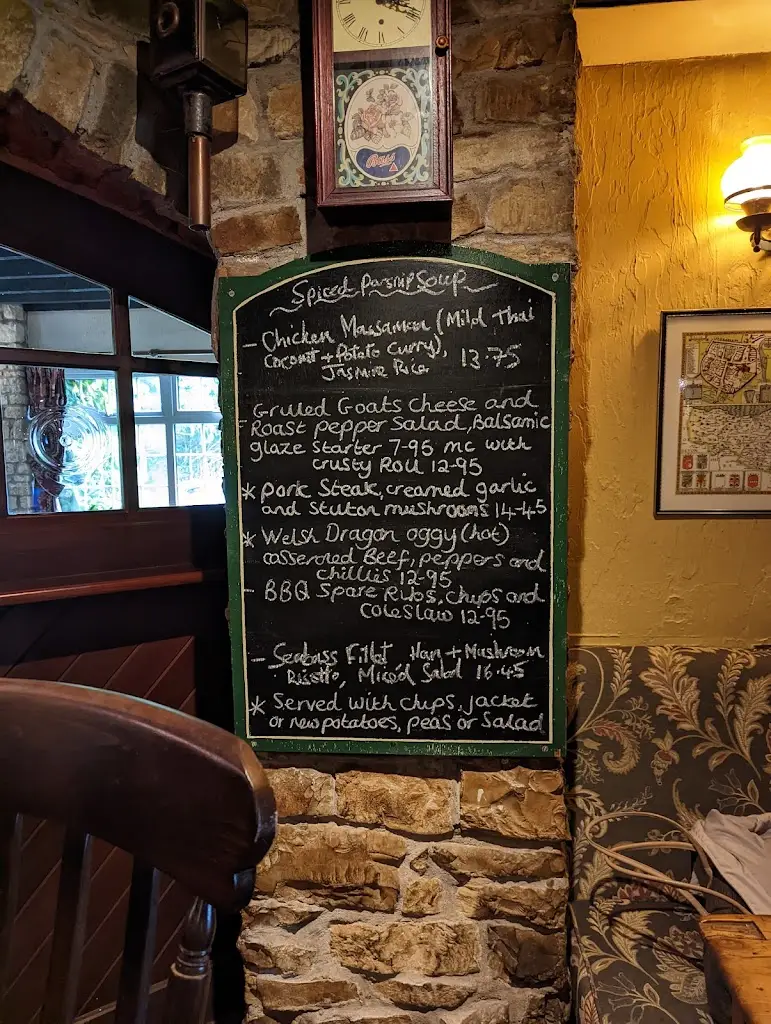 Bass
Spiced Parsnip Soup
- Chicken Massaman (Mild Thai
Coconut + Potato Curry), 13.75
Jasmine Rice
- Grilled Goats Cheese and
Roast pepper Salad, Balsamic
glaze Starter 7-95 mc with
crusty Roll 12-95
* Pork Steak, creamed garlic
and Stilton mushrooms 14-45
* Welsh Dragon oggy (hot)
casseroled Beef, peppers and
chillies 12-95
- BBQ Spare Ribs, chips and
coleslaw 12-95
- Seabass Fillet Ham + Mushroom
Risotto, Mixed Salad 16.45
* Served with chips, jacket
or new potatoes, peas or Salad